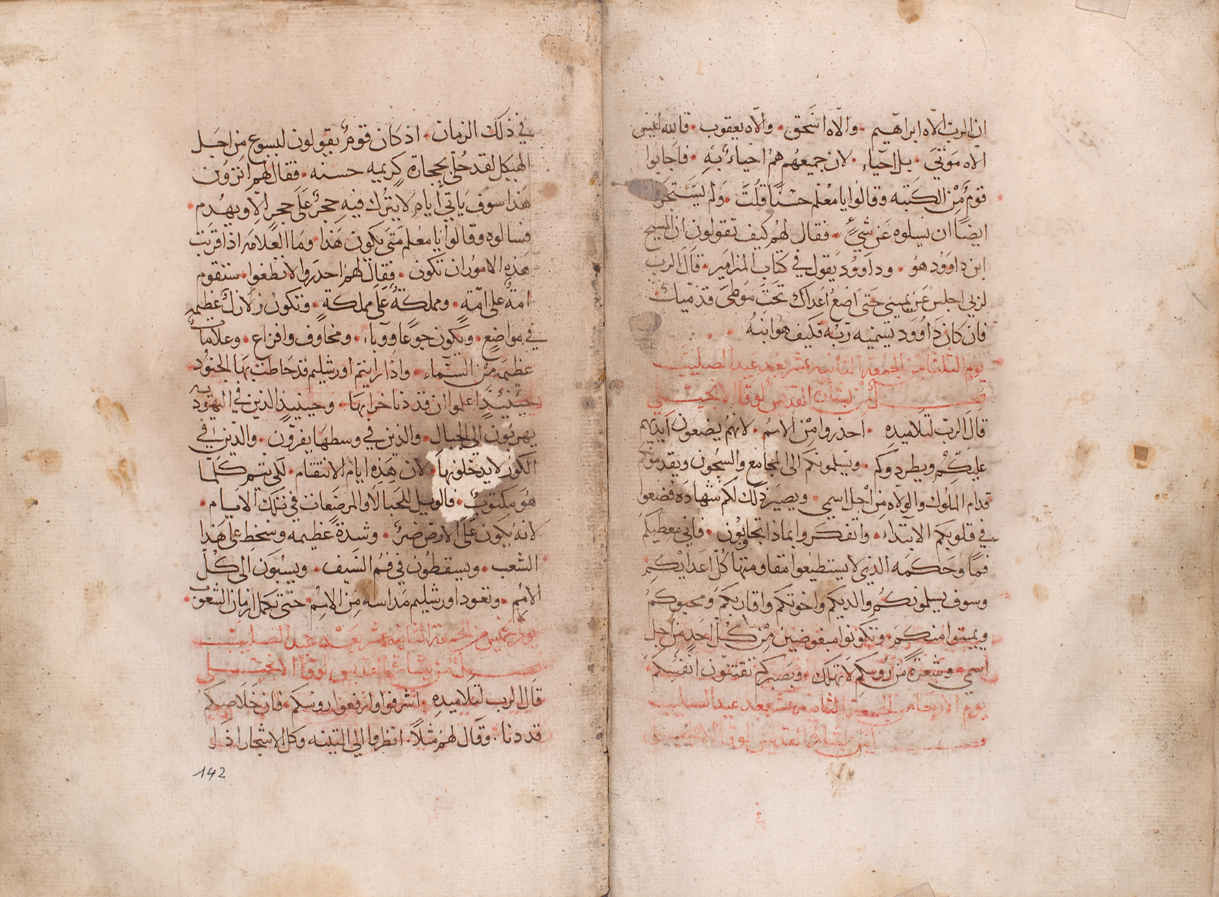 ان الرب الاه ابراهيم • والاه اسحق • والاه يعقوب • فالله ليس
الاه موتى • بل احياء • لان جميعهم هم احياء به • فاجابوا
قوم من الكتبه وقالوا يا معلم حسنا قلت • ولم يستجرى
ايضا ان يسلوه عن شي • فقال لهم كيف تقولون ان المسيح
ابن داوود هو • وداوود يقول في كتاب المزامير • قال الرب
لربي اجلس عن يميني حتى اضع اعداك تحت موطى قدميك
فان كان داوود يسميه ربه فكيف هو ابنه
يوم الثلثا من الجمعه الثامنه عشر بعد عيد الصليب
فصل من بشاره القديس لوقا الانجيلي
قال الرب لتلاميده • احدروا من الامم • لانهم يضعون ايديهم
عليكم ويطردوكم • ويسلمونكم الى المجامع والسجون ويقدموكم
قدام الملوك والولاه من اجل اسمي • ويصير دلك لكم شهاده فضعوا
في قلوبكم الابتداء • وانفكروا بماذا تجاوبون • فاني معطيكم
فما وحكمه الذي لا يستطيعوا مقاومتها كل اعدايكم
وسوف يسلمونكم والديكم واخوتكم واقاربكم ومحبوكم
ويميتوا منكم • وتكونوا مبغوضين من كل احد من اجل
اسمي • وشعرة من روسكم لا تهلك • وبصبركم تقتنون انفسكم
يوم الاربعا من الجمعة الثامنه عشر بعد عيد الصليب
فصل من بشاره القديس لوقا الانجيلي
في ذلك الزمان • اذ كان قوم يقولون ليسوع من اجل
الهيكل لقد حلي بحجارة كريمه حسنه • فقال لهم اترون
هذا سوف ياتي ايام لا يترك فيه حجر على حجر الا ويهدم •
فسالوه وقالوا يا معلم متى يكون هذا • وما العلامه اذا قربت
هذه الامور ان تكون • فقال لهم احدروا لا تطغوا • ستقوم
امة على امة • ومملكة على مملكة • وتكون زلازل عظيمه
في مواضع • وتكون جوعا ووباء • ومخاوف وافزاع • وعلامات
عظيمه من السماء • واذا رايتم اورشليم قد حاطت بها الجنود
حينيدا اعلموا ان قد دنا خرابها • وحينيد الدين في اليهوديه
يهربون الى الجبال • والدين في وسطها يفرون • والدين في
الكور لا يدخلونها • لان هذه ايام الانتقام • لكي يتم كلما
هو مكتوب • فالويل للحبالا والمرضعات في تلك الايام •
لانه يكون على الارض ضر • وشدة عظيمه وسخط على هذا
الشعب • ويسقطون في فم السيف • ويسبون الى كل
الامم • وتعود اورشليم مداسه من الامم • حتى تكمل ازمان الشعوب •
يوم الخميس من الجمعة الثامنه عشر بعد عيد الصليب
فصل من بشاره القديس لوقا الانجيلي
قال الرب لتلاميده • اشرفوا وارفعوا روسكم • فان خلاصكم
قد دنا • وقال لهم مثلا • انظروا الى التينه وكل الاشجار اذا
142